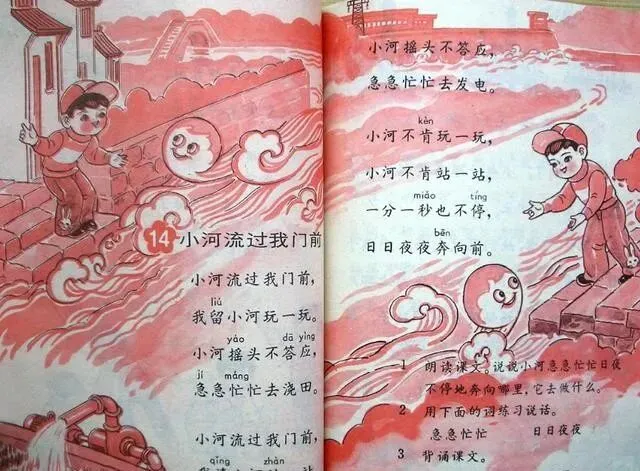 14 小河流过我门前
小河流过我门前,
liú
我留小河玩一玩。
yáo dā yìng
小河摇头不答应,
jí máng
急急忙忙去浇田。
小河流过我门前,
qǐng zhàn
小河摇头不答应,
急急忙忙去发电。
kěn
小河不肯玩一玩,
小河不肯站一站,
miǎo tíng
一分一秒也不停,
bēn
日日夜夜奔向前。
1 朗读课文。说说小河急急忙忙日夜
不停地奔向哪里,它去做什么。
2 用下面的词练习说话。
急急忙忙 日日夜夜
3 背诵课文。